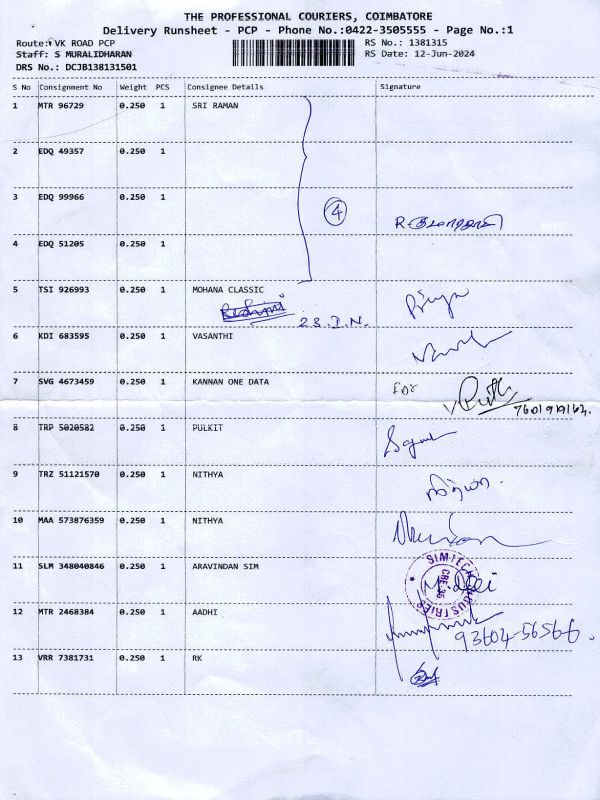 THE PROFESSIONAL COURIERS, COIMBATORE
Delivery Runsheet - PCP - Phone No.:0422-3505555 - Page No.:1
Route: VK ROAD PCP
RS No.: 1381315
Staff: S MURALIDHARAN
RS Date: 12-Jun-2024
DRS No.: DCJB138131501
S No Consignment No Weight PCS Consignee Details Signature
1 MTR 96729 0.250 1 SRI RAMAN
2 EDQ 49357 0.250 1
3 EDQ 99966 0.250 1
4
4 EDQ 51205 0.250 1
5 TSI 926993 0.250 1 MOHANA CLASSIC
Priya
23.I.N.
6 KDI 683595 0.250 1 VASANTHI
7 SVG 4673459 0.250 1 KANNAN ONE DATA
8 TRP 5020582 0.250 1 PULKIT
9 TRZ 51121570 0.250 1 NITHYA
நித்யா
10 MAA 573876359 0.250 1 NITHYA
11 SLM 348040846 0.250 1 ARAVINDAN SIM
SIMTECH INDUSTRIES
CBE-35
12 MTR 2468384 0.250 1 AADHI
93604-56566
13 VRR 7381731 0.250 1 RK